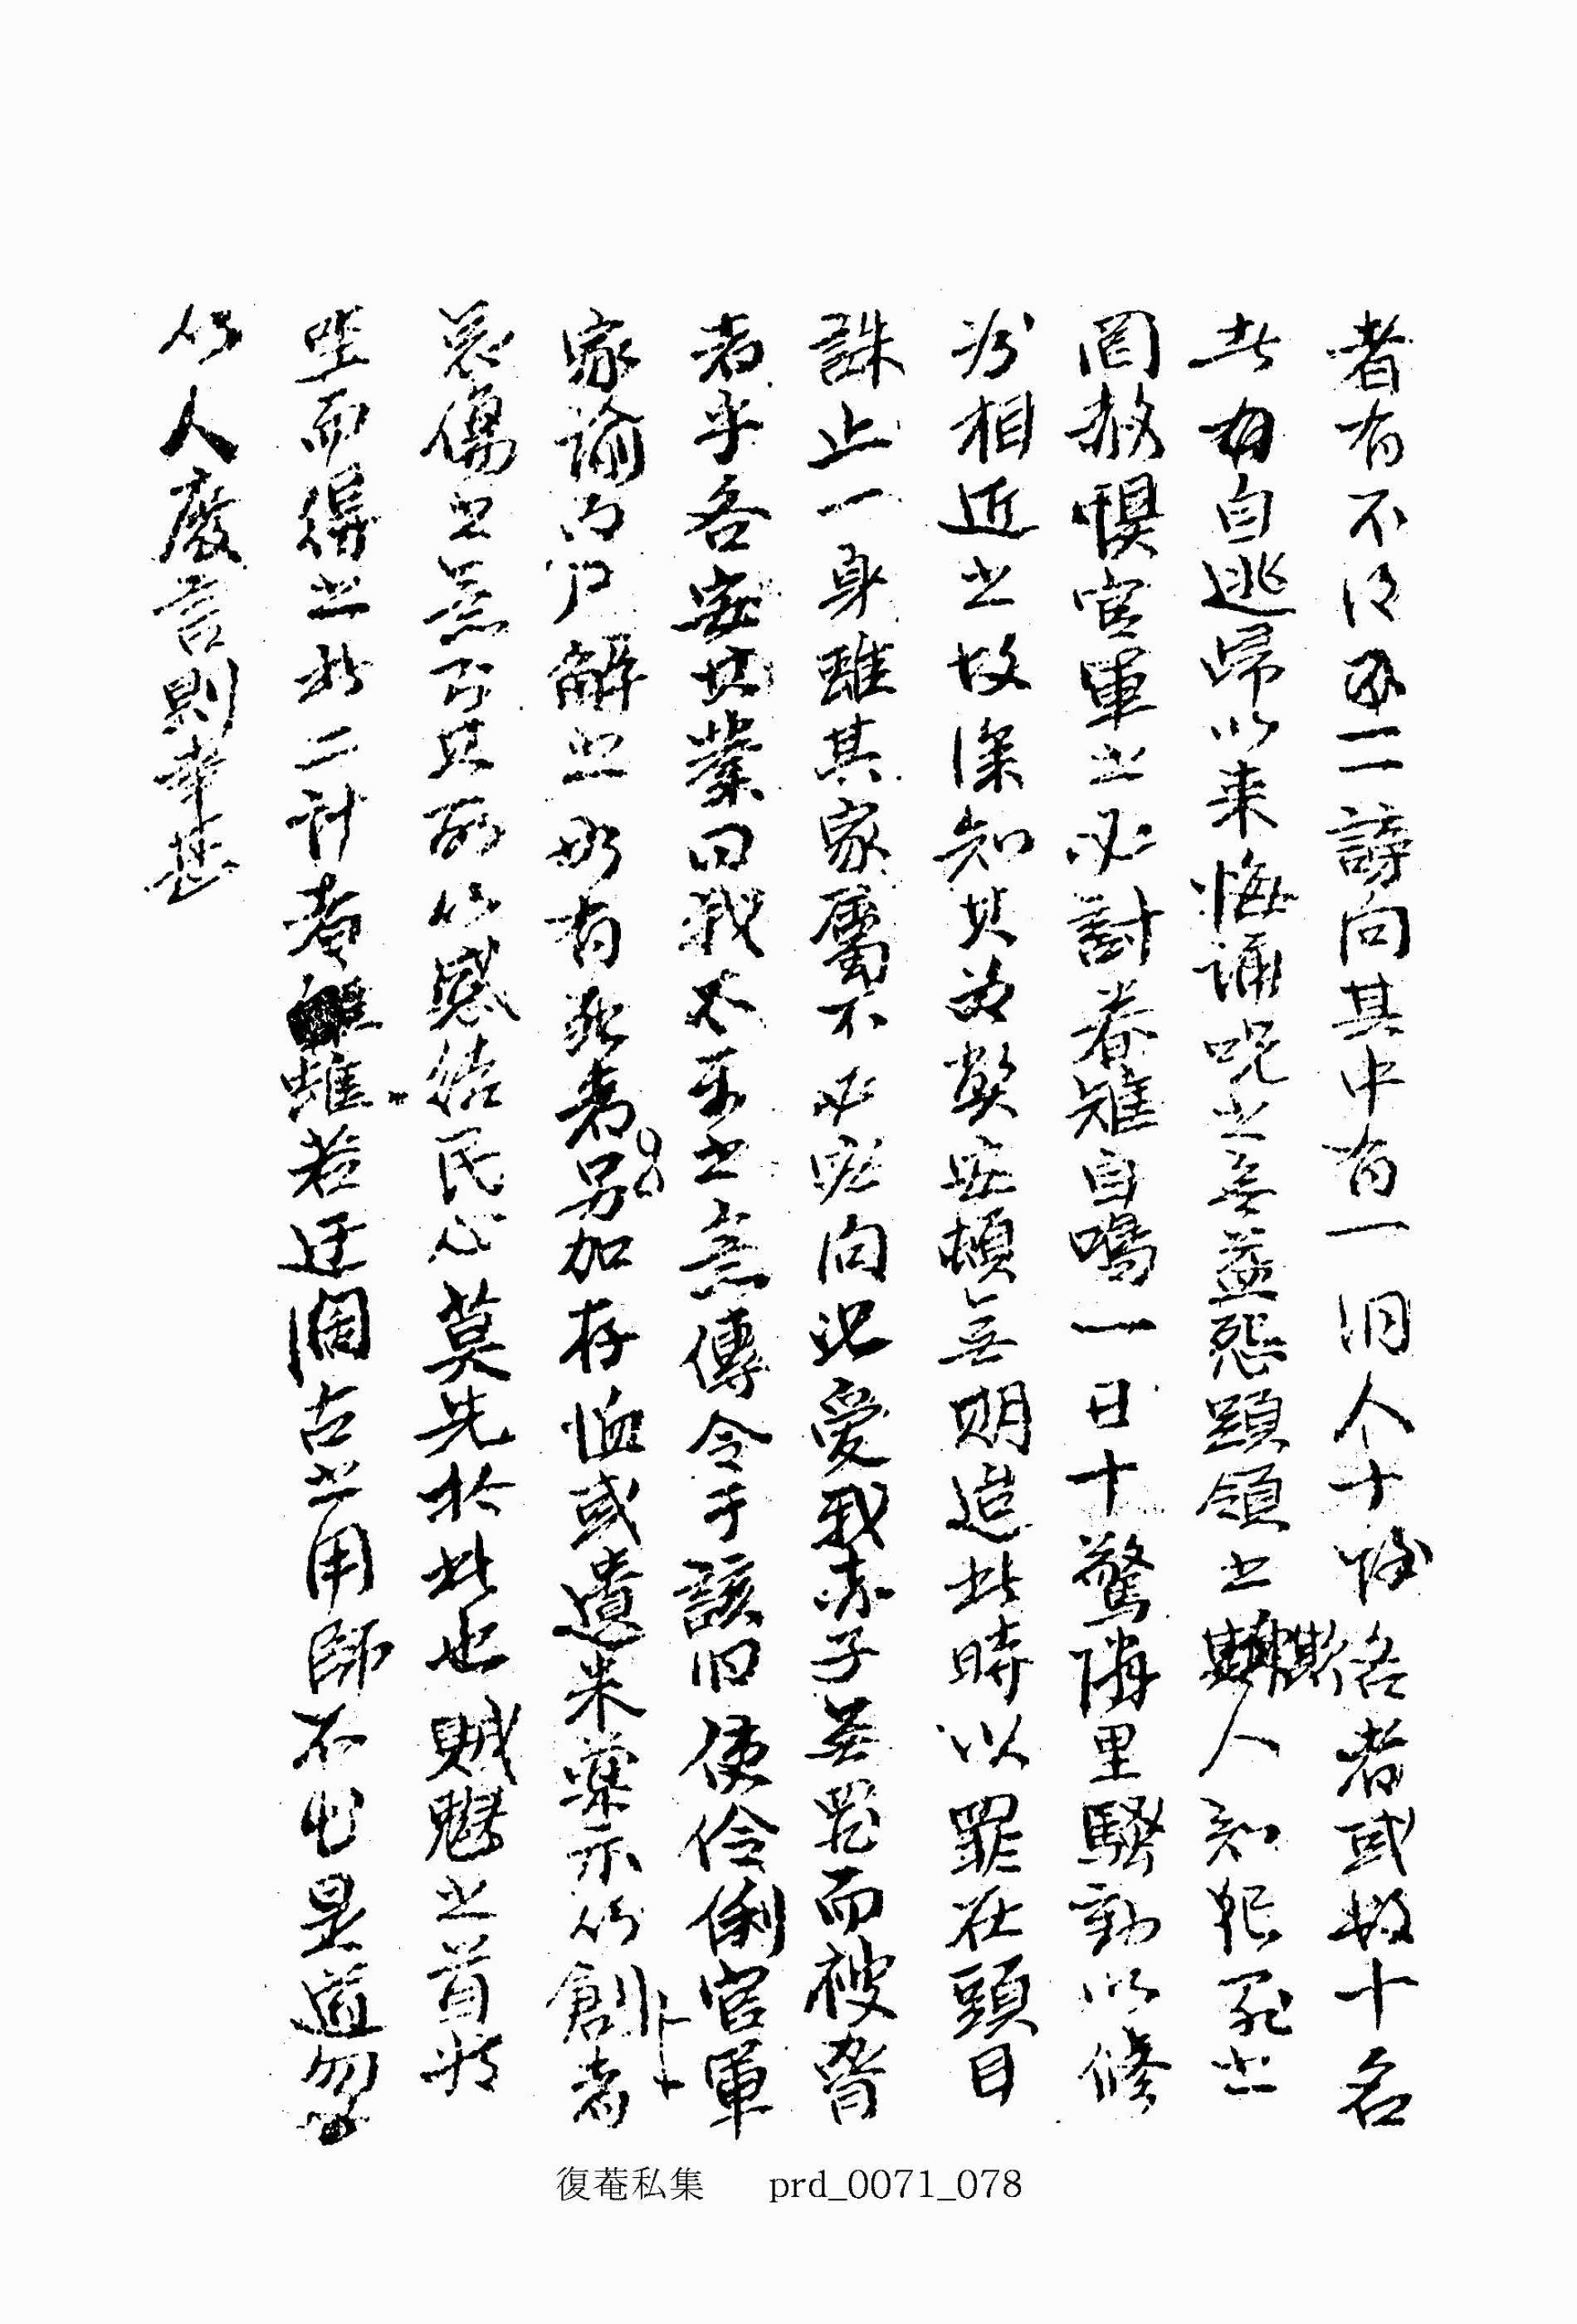 者有不得不一二謗向其中有一洞人十餘名者或數十名
此有自逃歸以來悔誦呪之無益怨頭領之欺人知犯死之
罔赦惧官軍之必討眷雖自鳴一日十驚隣里騷動以修
相近之故深知其為弊安頓無期造此時以罪在頭目
誅止一身雖其家屬不必問況愛我赤子無罪而被脅
者乎各安其業曰我不究之意傳令于該旧使伶俐官軍
家諭而戶解之如有死者另加存恤或遺米藥示以創者
哀傷之意即其所以感結民心莫先於此也賊魁之首將
坐而得之於二計者雖若迂闊古之用師不出是道勿
以人廢言則幸甚
復菴私集 prd_0071_078